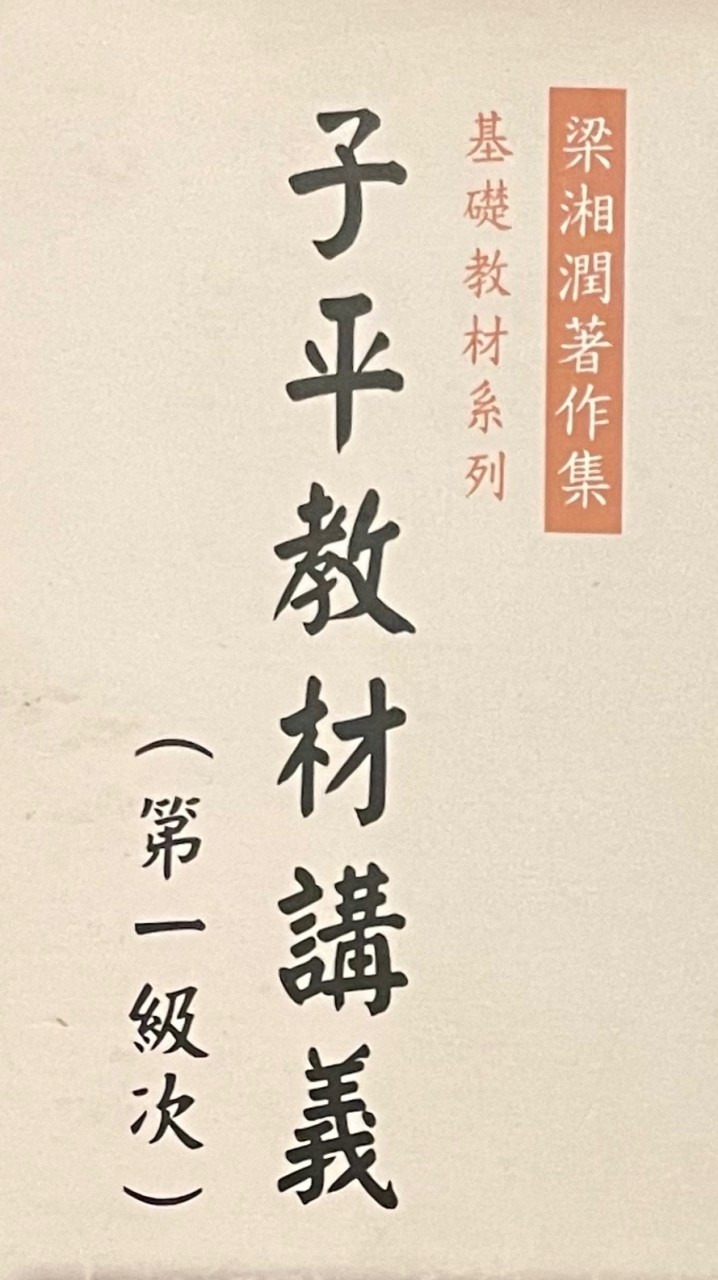 梁湘潤著作集
基礎教材系列
子平教材講義
（第一級次）